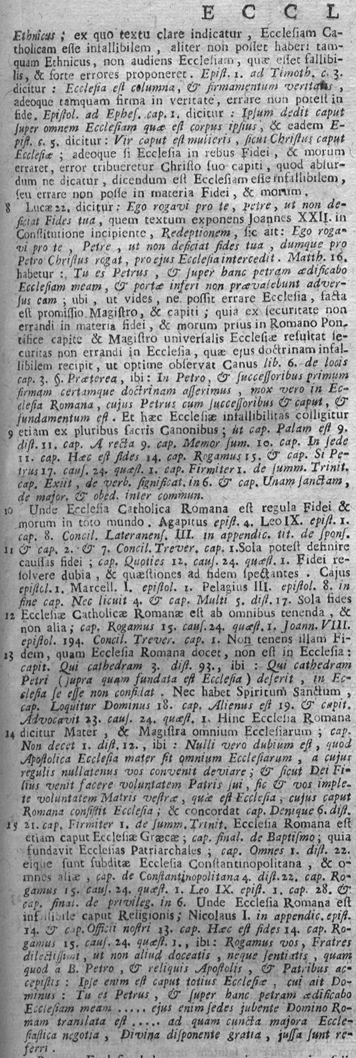 E C C L
Ethnicus; ex quo textu clare indicatur, Ecclesiam Ca-
tholicam esse intallibilem, aliter non posset haberi tam-
quam Ethnicus, non audiens Ecclesiam, quæ esset fallibi-
lis, & forte errores proponeret. Epist. 1. ad Timoth. c. 3.
dicitur: Ecclesia est columna, & firmamentum veritatis,
adeoque tamquam firma in veritate, errare non potest in
fide. Epistol. ad Ephes. cap. 1. dicitur: Ipsum dedit caput
super omnem Ecclesiam quæ est corpus ipsius, & eadem E-
pist. c. 5. dicitur: Vir caput est mulieris, sicut Christus caput
Ecclesiæ; adeoque si Ecclesia in rebus Fidei, & morum
erraret, error tribueretur Christo suo capiti, quod absur-
dum ne dicatur, dicendum est Ecclesiam esse infallibilem,
seu errare non posse in materia Fidei, & morum.
8 Lucæ 22. dicitur: Ego rogavi pro te, Petre, ut non de-
ficiat Fides tua, quem textum exponens Joannes XXII. in
Constitutione incipiente, Redeptionem, sic ait: Ego roga-
vi pro te, Petre, ut non deficiat fides tua, dumque pro
Petro Christus rogat, pro ejus Ecclesia intercedit. Matth. 16.
habetur: Tu es Petrus, & super hanc petram ædificabo
Ecclesiam meam, & portæ inferi non prævalebunt adver-
sus eam; ubi, ut vides, ne possit errare Ecclesia, facta
est promissio Magistro, & capiti; quia ex securitate non
errandi in materia fidei, & morum prius in Romano Pon-
tifice capite & Magistro universalis Ecclesiæ resultat se-
curitas non errandi in Ecclesia, quæ ejus doctrinam infal-
libilem recipit, ut optime observat Canus lib. 6. de locis
cap. 3. §. Præterea, ibi: In Petro, & successoribus primum
firmam certamque doctrinam asserimus, mox vero in Ec-
clesia Romana, cujus Petrus cum successoribus & caput, &
fundamentum est. Et hæc Ecclesiæ infallibilitas colligitur
9 etiam ex pluribus sacris Canonibus; ut cap. Palam est 9.
dist. 11. cap. A recta 9. cap. Memor sum. 10. cap. In sede
11. cap. Hæc est fides 14. cap. Rogamus 15. & cap. Si Pe-
trus 17. caus. 24. quæst. 1. cap. Firmiter 1. de summ. Trinit.
cap. Exiit, de verb. significat. in 6. & cap. Unam sanctam,
de major. & obed. inter commun.
10 Unde Ecclesia Catholica Romana est regula Fidei &
morum in toto mundo. Agapitus epist. 4. Leo IX. epist. 1.
cap. 8. Concil. Lateranens. III. in appendic. tit. de spons.
11 & cap. 2. & 7. Concil. Trever. cap. 1. Sola potest definire
caussas fidei; cap. Quoties 12. caus. 24. quæst. 1. Fidei re-
solvere dubia, & quæstiones ad fidem spectantes. Cajus
epistol. 1. Marcell. I. epistol. 1. Pelagius III. epistol. 8. in
fine cap. Nec licuit 4. & cap. Multi 5. dist. 17. Sola fides
12 Ecclesiæ Catholicæ Romanæ est ab omnibus tenenda, &
non alia; cap. Rogamus 15. caus. 24. quæst. 1. Joann. VIII.
epistol. 194. Concil. Trever. cap. 1. Non tenens illam Fi-
13 dem, quam Ecclesia Romana docet, non est in Ecclesia:
capit. Qui cathedram 3. dist. 93., ibi: Qui cathedram
Petri (supra quam fundata est Ecclesia) deserit, in Ec-
clesia se esse non confidat. Nec habet Spiritum Sanctum,
cap. Loquitur Dominus 18. cap. Alienus est 19. & capit.
Advocavit 23. caus. 24. quæst. 1. Hinc Ecclesia Romana
14 dicitur Mater, & Magistra omnium Ecclesiarum; cap.
Non decet 1. dist. 12., ibi: Nulli vero dubium est, quod
Apostolica Ecclesia mater sit omnium Ecclesiarum, a cujus
regulis nullatenus vos convenit deviare; & sicut Dei Fi-
lius venit facere voluntatem Patris sui, sic & vos imple-
te voluntatem Matris vestræ, quæ est Ecclesia, cujus caput
Romana consistit Ecclesia; & concordat cap. Denique 6. dist.
15 21. cap. Firmiter 1. de summ. Trinit. Ecclesia Romana est
etiam caput Ecclesiæ Græcæ; cap. final. de Baptismo; quia
fundavit Ecclesias Patriarchales; cap. Omnes 1. dist. 22.
eique sunt subditæ Ecclesia Constantinopolitana, & o-
mnes aliæ, cap. de Constantinopolitana 4. dist. 22. cap. Ro-
gamus 15. caus. 24. quæst. 1. Leo IX. epist. 1. cap. 28. &
cap. final. de privileg. in 6. Unde Ecclesia Romana est
infallibile caput Religionis; Nicolaus I. in appendic. epist.
14. & cap. Officii nostri 13. cap. Hæc est fides 14. cap. Ro-
gamus 15. caus. 24. quæst. 1., ibi: Rogamus vos, Fratres
dilectissimi, ut non aliud doceatis, neque sentiatis, quam
quod a B. Petro, & reliquis Apostolis, & Patribus ac-
cepistis: Ipse enim est caput totius Ecclesiæ, cui ait Do-
minus: Tu es Petrus, & super hanc petram ædificabo
Ecclesiam meam ..... ejus enim sedes jubente Domino Ro-
mam translata est ..... ad quam cuncta majora Eccle-
siastica negotia, Divina disponente gratia, jussa sunt re-
ferri.